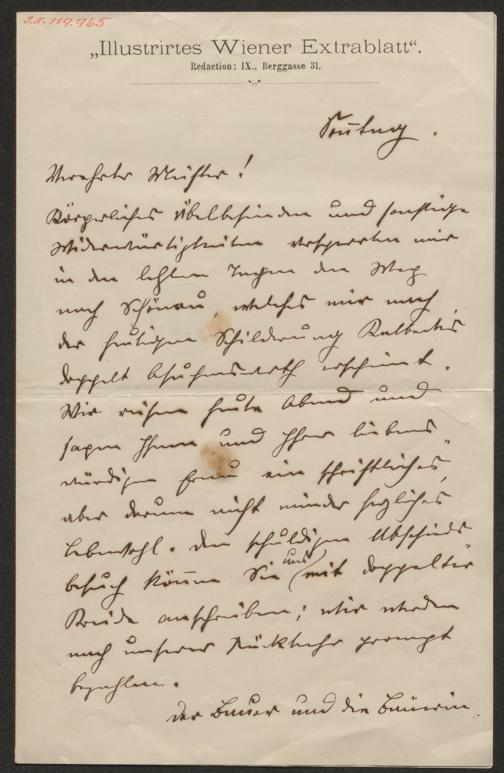 I.N. 119.965
„Illustrirtes Wiener Extrablatt“.
Redaction: IX., Berggasse 31.
Sonntag.
Verehrter Meister!
Körperliches Übelbefinden und sonstige
Widerwärtigkeiten versperrten mir
in den letzten Tagen den Weg
nach Schönau, welches mir nach
der heutigen Schilderung Kalbeck's
doppelt besuchenswerth erscheint.
Wir reisen heute Abend und
sagen Ihnen und Ihrer liebens„
würdigen Frau ein schriftliches,
aber darum nicht minder herzliches
Lebewohl. Den schuldigen Abschieds
besuch können Sie uns mit doppelter
Kreide anschreiben; wir werden
nach unserer Rückkehr prompt
bezahlen.
Der Bauer und die Bäuerin.